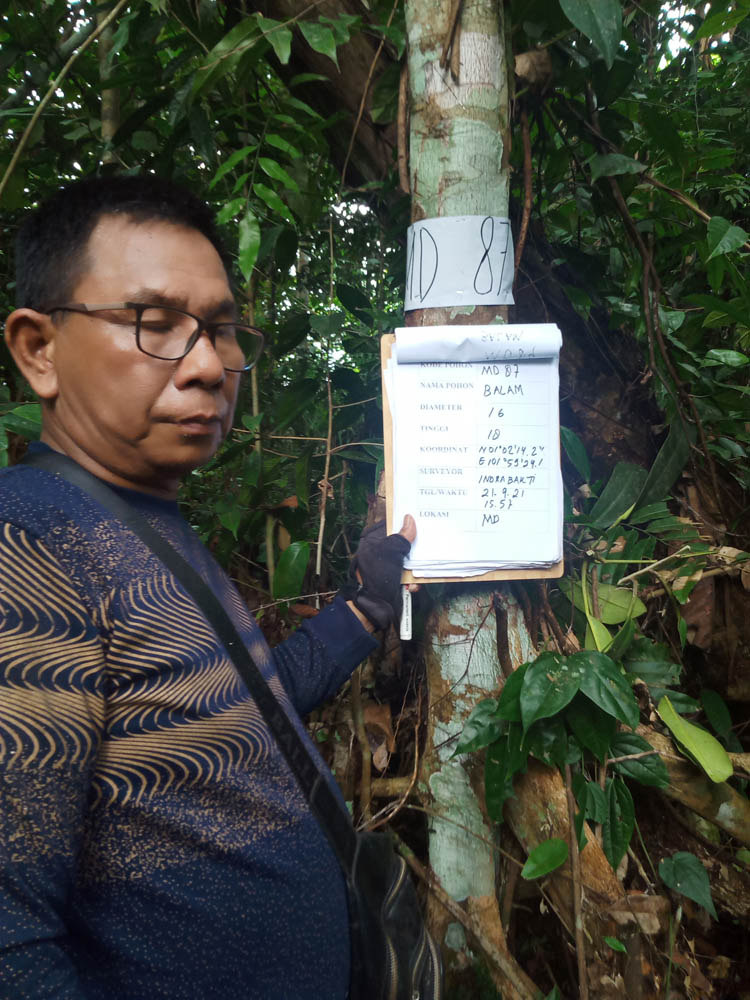 MD 87
KODE POHON MD 87
NAMA POHON BALAM
DIAMETER 16
TINGGI 18
KOORDINAT N 01°02'14.2"
E 101°59'24.1
SURVEYOR INDRA BAKTI
TGL/WAKTU 21.9.21
15.57
LOKASI MD